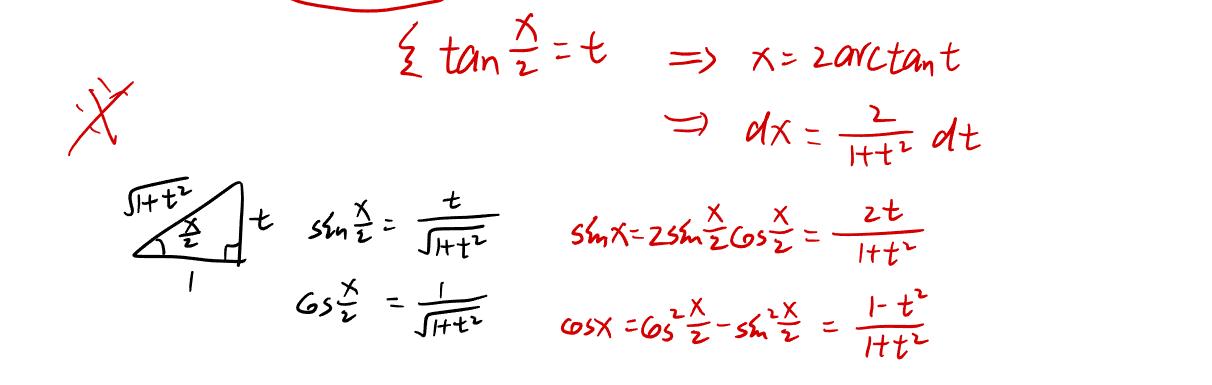 ⟨ tan x/2 = t ⇒ x = 2arctan t
⇒ dx = 2/(1+t²) dt
√(1+t²) x/2 t 1
sin x/2 = t/√(1+t²) sinx = 2sin x/2 cos x/2 = 2t/(1+t²)
cos x/2 = 1/√(1+t²) cosx = cos² x/2 - sin² x/2 = (1-t²)/(1+t²)